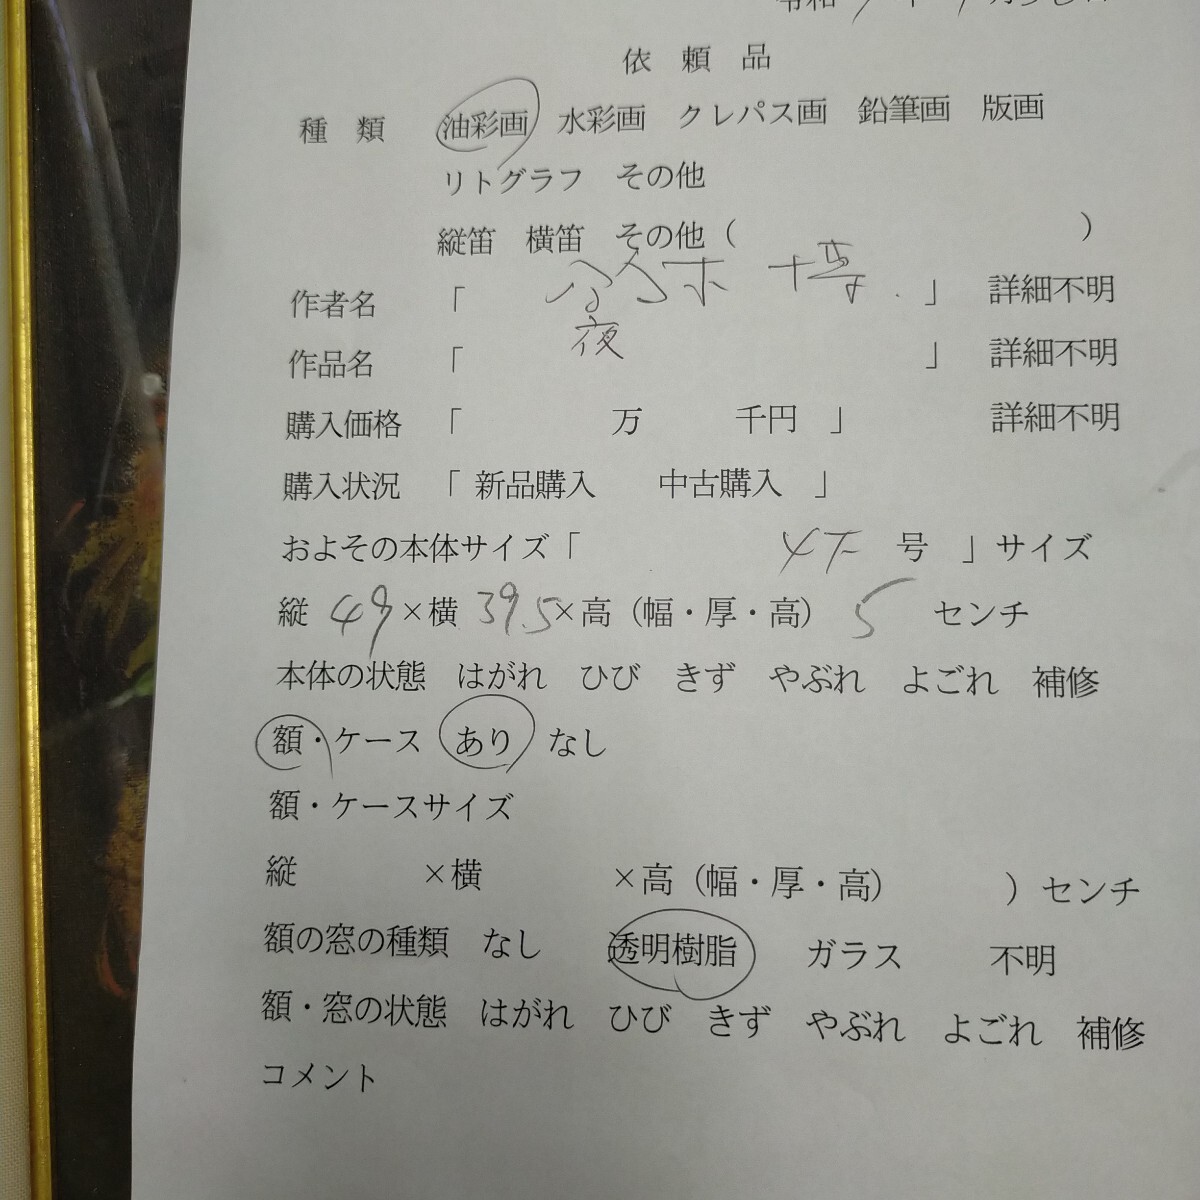 依頼品
種類 油彩画 水彩画 クレパス画 鉛筆画 版画
リトグラフ その他
縦笛 横笛 その他（ ）
作者名 「 博 」 詳細不明
作品名 「 夜 」 詳細不明
購入価格 「 万 千円 」 詳細不明
購入状況 「 新品購入 中古購入 」
およその本体サイズ「 号 」サイズ
縦 49 ×横 39.5 ×高（幅・厚・高） 5 センチ
本体の状態 はがれ ひび きず やぶれ よごれ 補修
額・ケース あり なし
額・ケースサイズ
縦 ×横 ×高（幅・厚・高） ）センチ
額の窓の種類 なし 透明樹脂 ガラス 不明
額・窓の状態 はがれ ひび きず やぶれ よごれ 補修
コメント